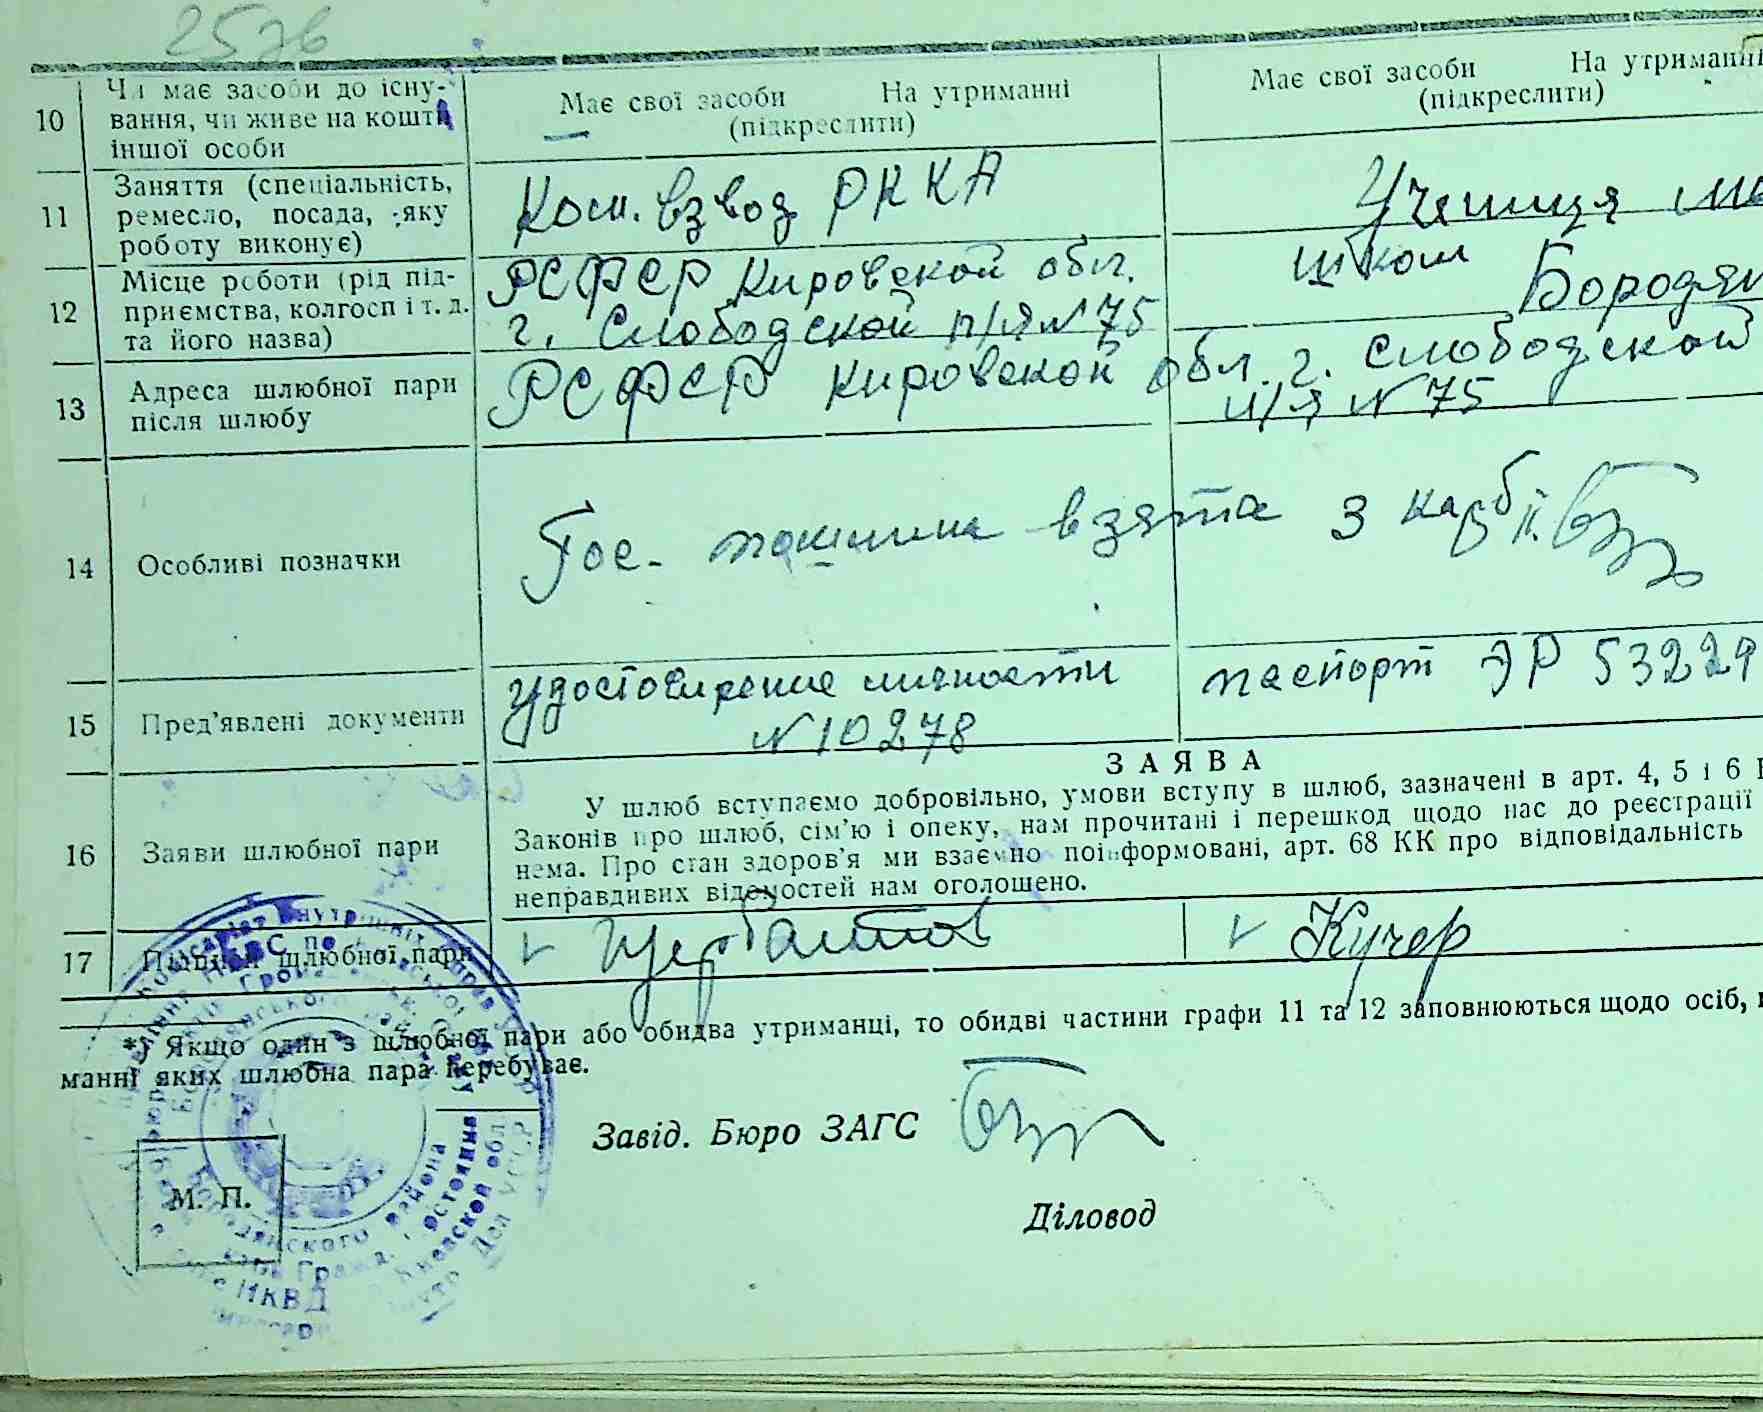 2576
10 Чи має засоби до існу-
вання, чи живе на кошти
іншої особи
Має свої засоби На утриманні
(підкреслити)
Має свої засоби На утриманні
(підкреслити)
11 Заняття (спеціальність,
ремесло, посада, яку
роботу виконує)
Ком. взвод РККА
Ученица
12 Місце роботи (рід під-
приємства, колгосп і т. д.
та його назва)
РСФСР Кировской обл.
г. Слободской п/я N 75
школ
Бородян
13 Адреса шлюбної пари
після шлюбу
РСФСР Кировской обл. г. Слободской
п/я N 75
14 Особливі позначки
Гос. пошлина взята 3 карб
15 Пред'явлені документи
Удостоверение личности
N 10278
паспорт ЭР 53229
16 Заяви шлюбної пари
ЗАЯВА
У шлюб вступаємо добровільно, умови вступу в шлюб, зазначені в арт. 4, 5 і 6
Законів про шлюб, сім'ю і опеку, нам прочитані і перешкод щодо нас до реєстрації
нема. Про стан здоров'я ми взаємно поінформовані, арт. 68 КК про відповідальність
неправдивих відомостей нам оголошено.
17 Підписи шлюбної пари
Кучер
*) Якщо один з шлюбної пари або обидва утриманці, то обидві частини графи 11 та 12 заповнюються щодо осіб,
манні яких шлюбна пара перебуває.
Завід. Бюро ЗАГС
М. П.
Діловод
района
Киевской обл
НКВД